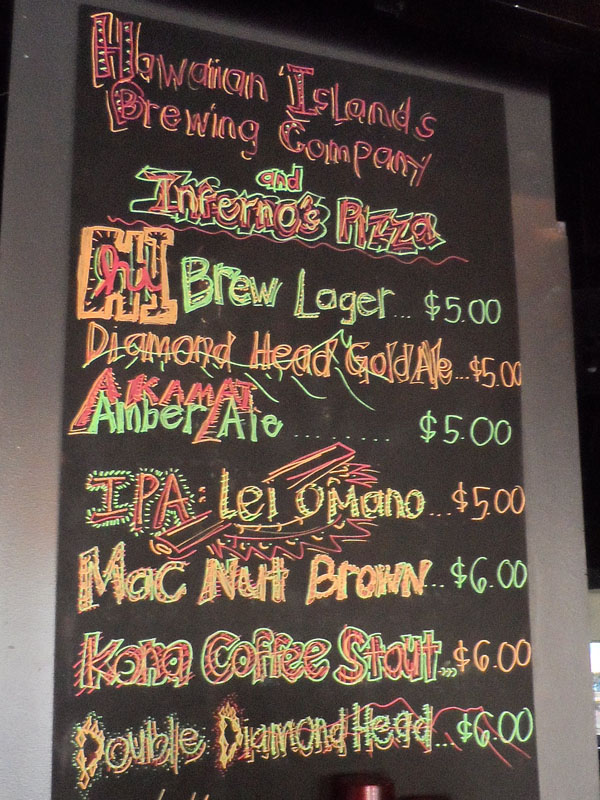 Hawaiian Islands
Brewing Company
and
Inferno's Pizza
HI Brew Lager... $5.00
Diamond Head Gold Ale...$5.00
AKAMAI
Amber Ale .......... $5.00
IPA: Lei O'Mano...$5.00
Mac Nut Brown...$6.00
Kona Coffee Stout...$6.00
Double Diamond Head...$6.00